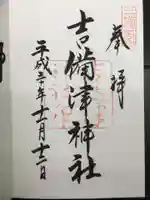 奉拝
吉備津神社
平成三十年十一月十二日